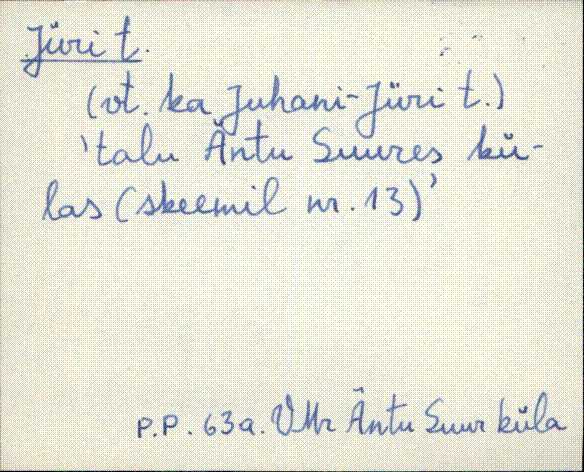 Jüri t.
(vt. ka Juhani-Jüri t.)
'talu Äntu Suures kü-
las (skeemil nr. 13)'
P.P. 63a. VMr Äntu Suur küla